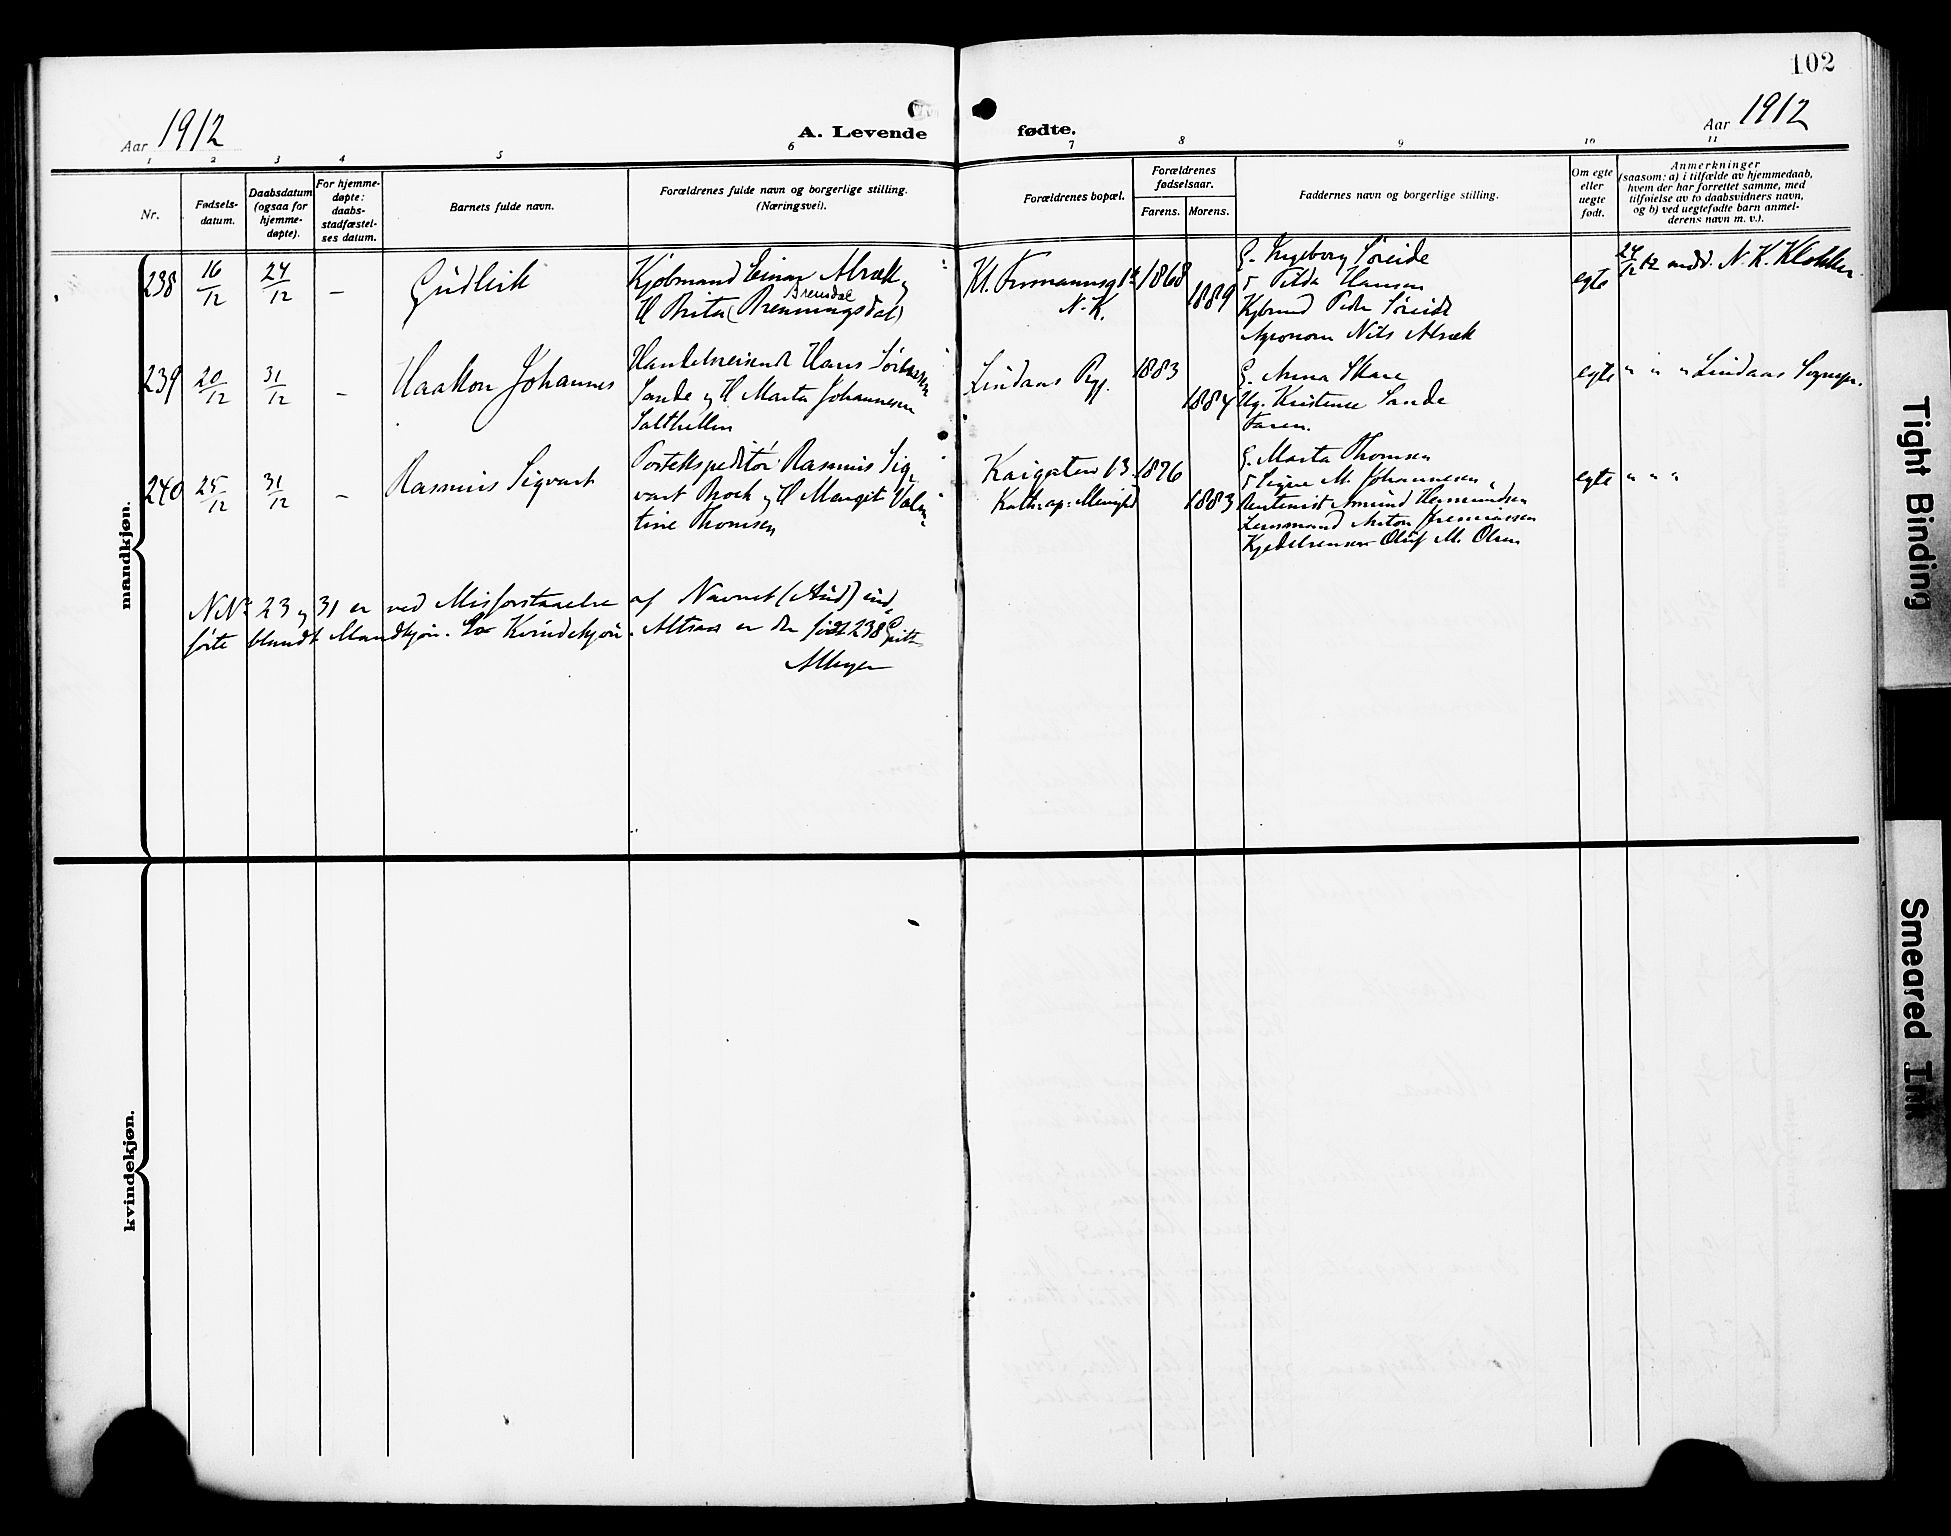 102
Aar 1912
A. Levende fødte.
Aar 1912
1 2 3 4 5 6 7 8 9 10 11
Nr.
Fødsels-
datum.
Daabsdatum
(ogsaa for
hjemme-
døpte).
For hjemme-
døpte:
daabs-
stadfæstel-
ses datum.
Barnets fulde navn.
Forældrenes fulde navn og borgerlige stilling.
(Næringsvei).
Forældrenes bopæl.
Forældrenes
fødselsaar.
Farens. Morens.
Faddernes navn og borgerlige stilling.
Om egte
eller
uegte
født.
Anmerkninger
(saasom: a) i tilfælde av hjemmedaab,
hvem der har forrettet samme, med
tilføielse av to daabsvidners navn,
og b) ved uegtefødte barn anmel-
derens navn m. v.).
mandkjøn.
238
16/12
24/12
–
Gudleik
Kjøbmand Einar Alræk og
H Brita (Brenningsdal)
Breisdal
N. K.
1868
1889
G. Ingeborg Søreide
Tilda Hansen
Peder Søreide
Agronom Nils Alræk
egte
24/12 12 N. K. Klokker
239
20/12
31/12
–
Haakon Johannes
Handelsreisende Hans
Sande og H Marta Johannesen
Salthellen
Lindaas Pgj.
1883
1884
G. Anna Skare
Ug. Kristense Sande
Faren.
egte
" " " Lindaas Sognepr.
240
25/12
31/12
–
Rasmus Sigvart
Postekspeditør Rasmus Sig-
vart Brock og H Margit Valen-
tine Thomsen
Kaigaten 13
1876
1883
G. Marta Thomsen
Signe M. Johannesen
Rentenist Amund Hermundsen
Lensmand Anton
Kjedelrenser Oluf M. Olsen
egte
" " "
No 23 og 31 er ved Misforstaaelse af Navnet (Aud) ind-
førte blandt Mandkjøn. Er Kvindekjøn. Altsaa er der født 238
kvindekjøn.
Tight Binding
Smeared Ink